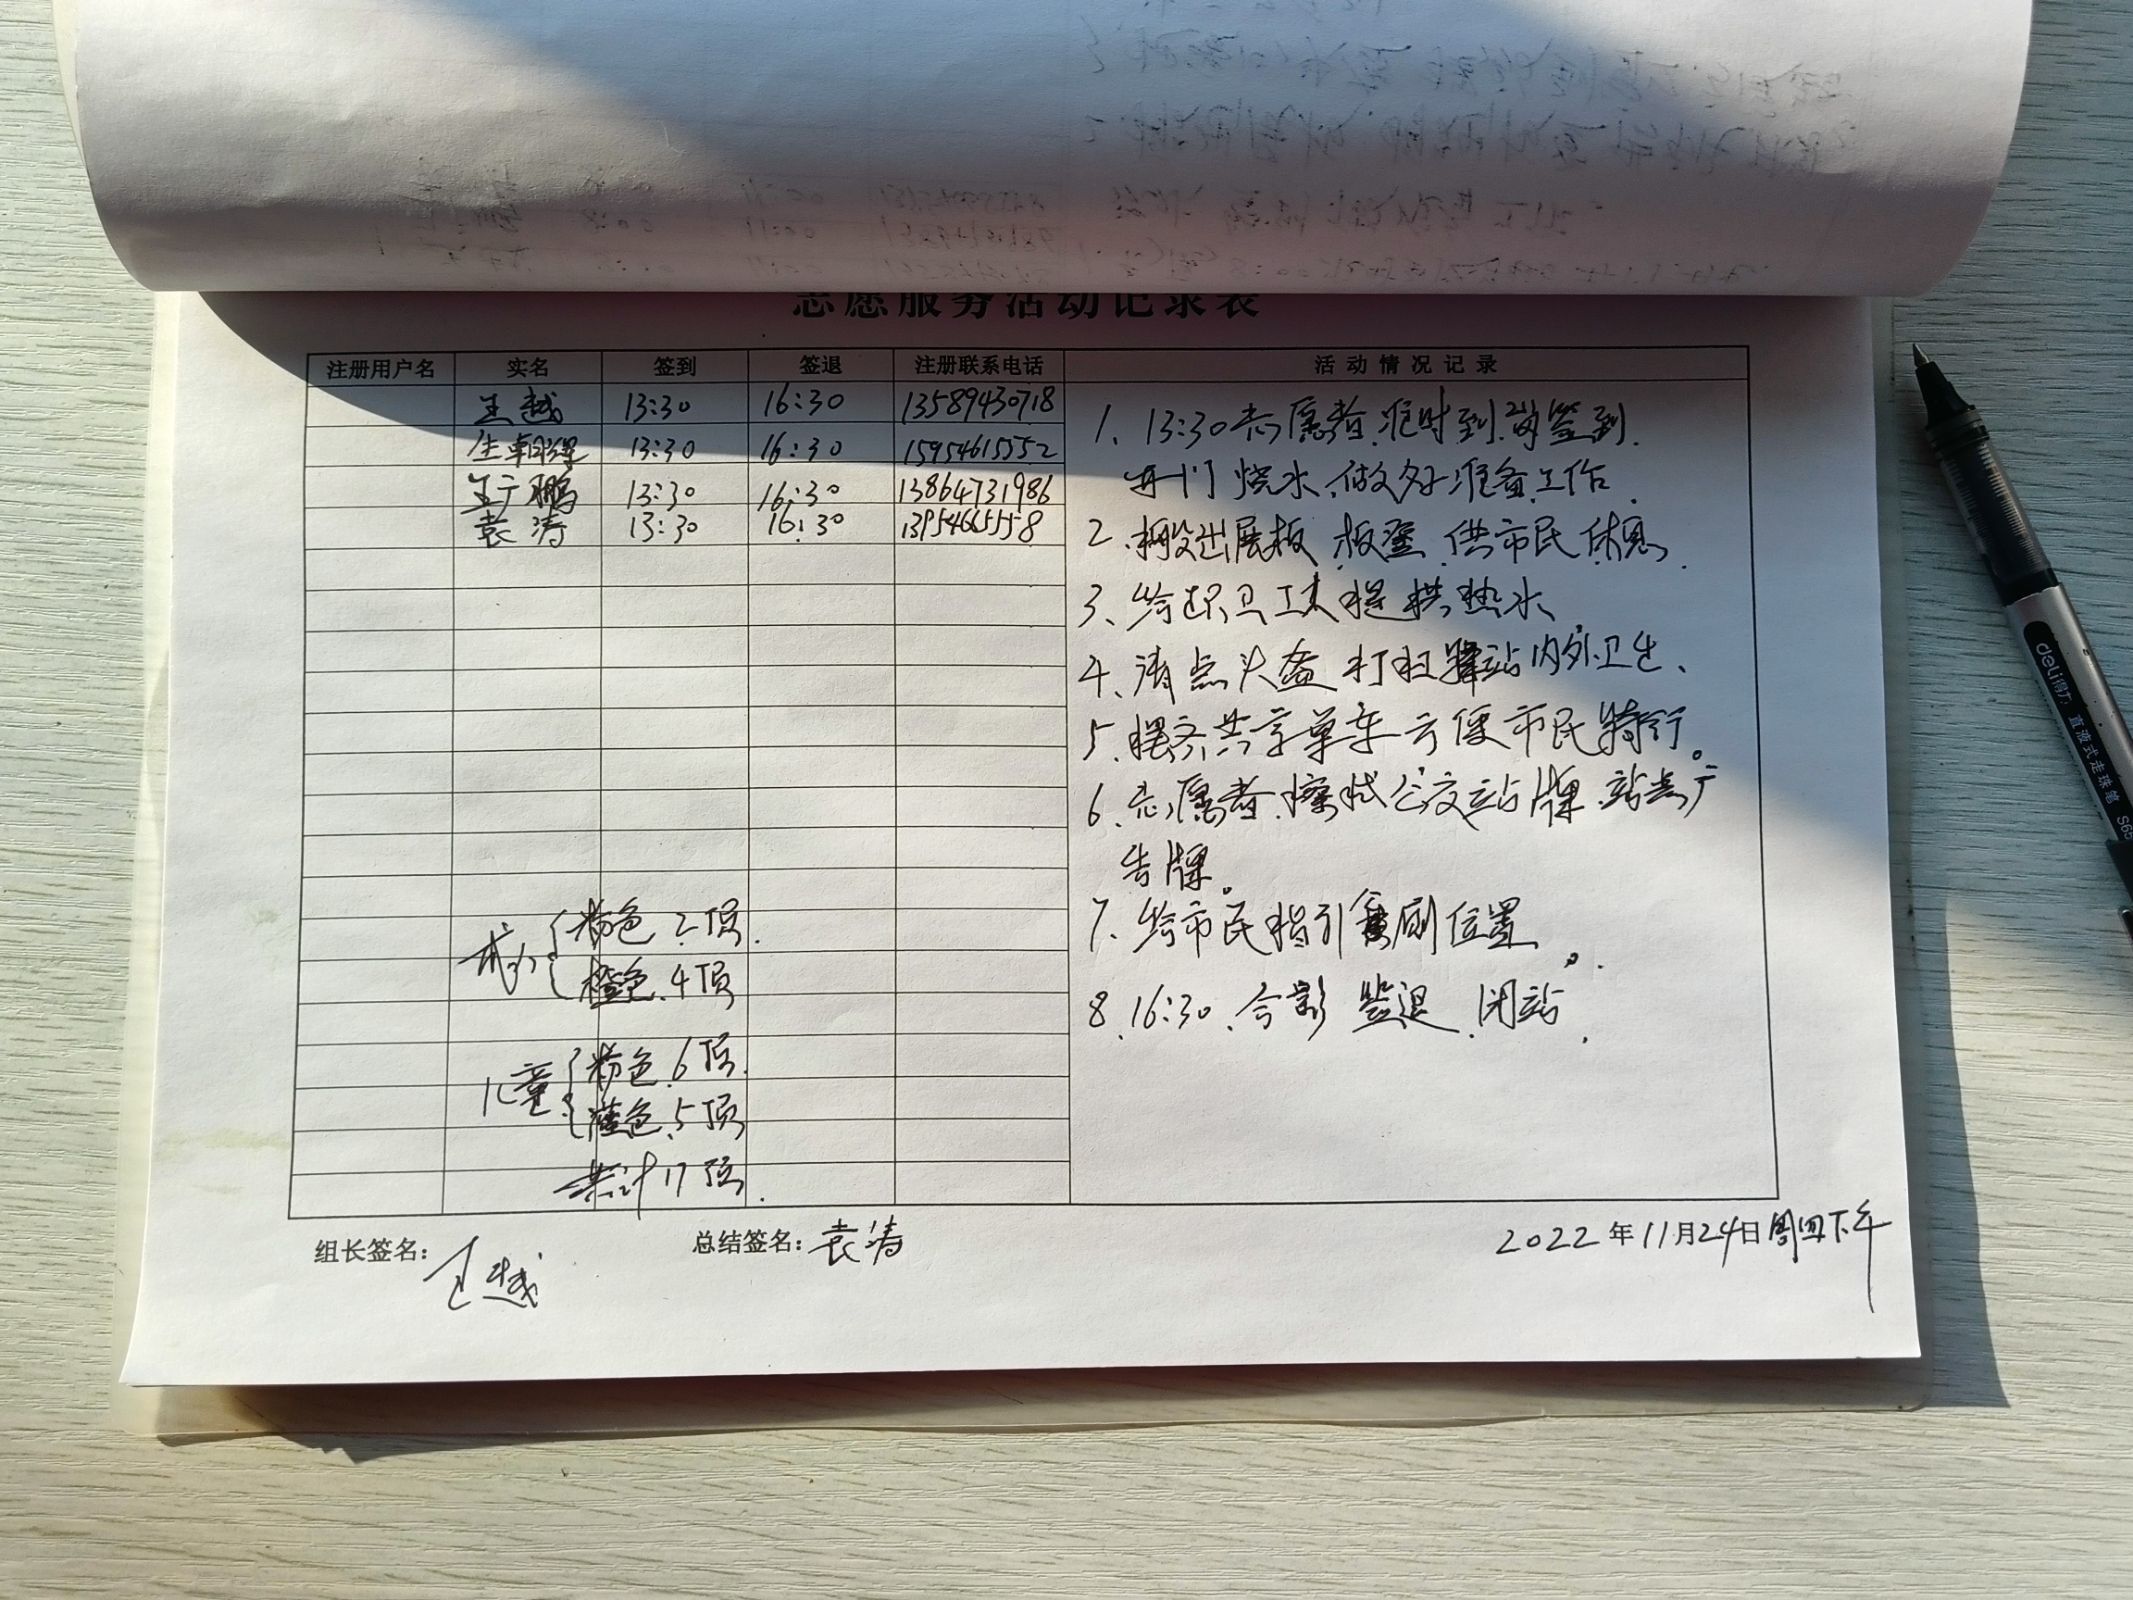 志愿服务活动记录表
注册用户名 实名 签到 签退 注册联系电话 活动情况记录
王越 13:30 16:30 13589430718
13:30 16:30 15954615552
王广鹏 13:30 16:30 13864731986
袁涛 13:30 16:30 13954665558
1、13:30志愿者准时到岗签到.
开门 烧水、做好准备工作.
2、摆出展板 板凳 供市民休息.
3、给环卫工人提供热水
4、清点头盔 打扫驿站内外卫生、
5、摆齐共享单车方便市民骑行。
6、志愿者擦拭公交站牌、站点广
告牌。
7、给市民指引厕位置。
8、16:30、合影 签退、闭站.
成人{粉色 2顶.
橙色、4顶
儿童{粉色、6顶.
蓝色、5顶
共计17顶.
组长签名: 王越 总结签名: 袁涛 2022年11月24日周四下午
deli得力 直液式走珠笔 S65